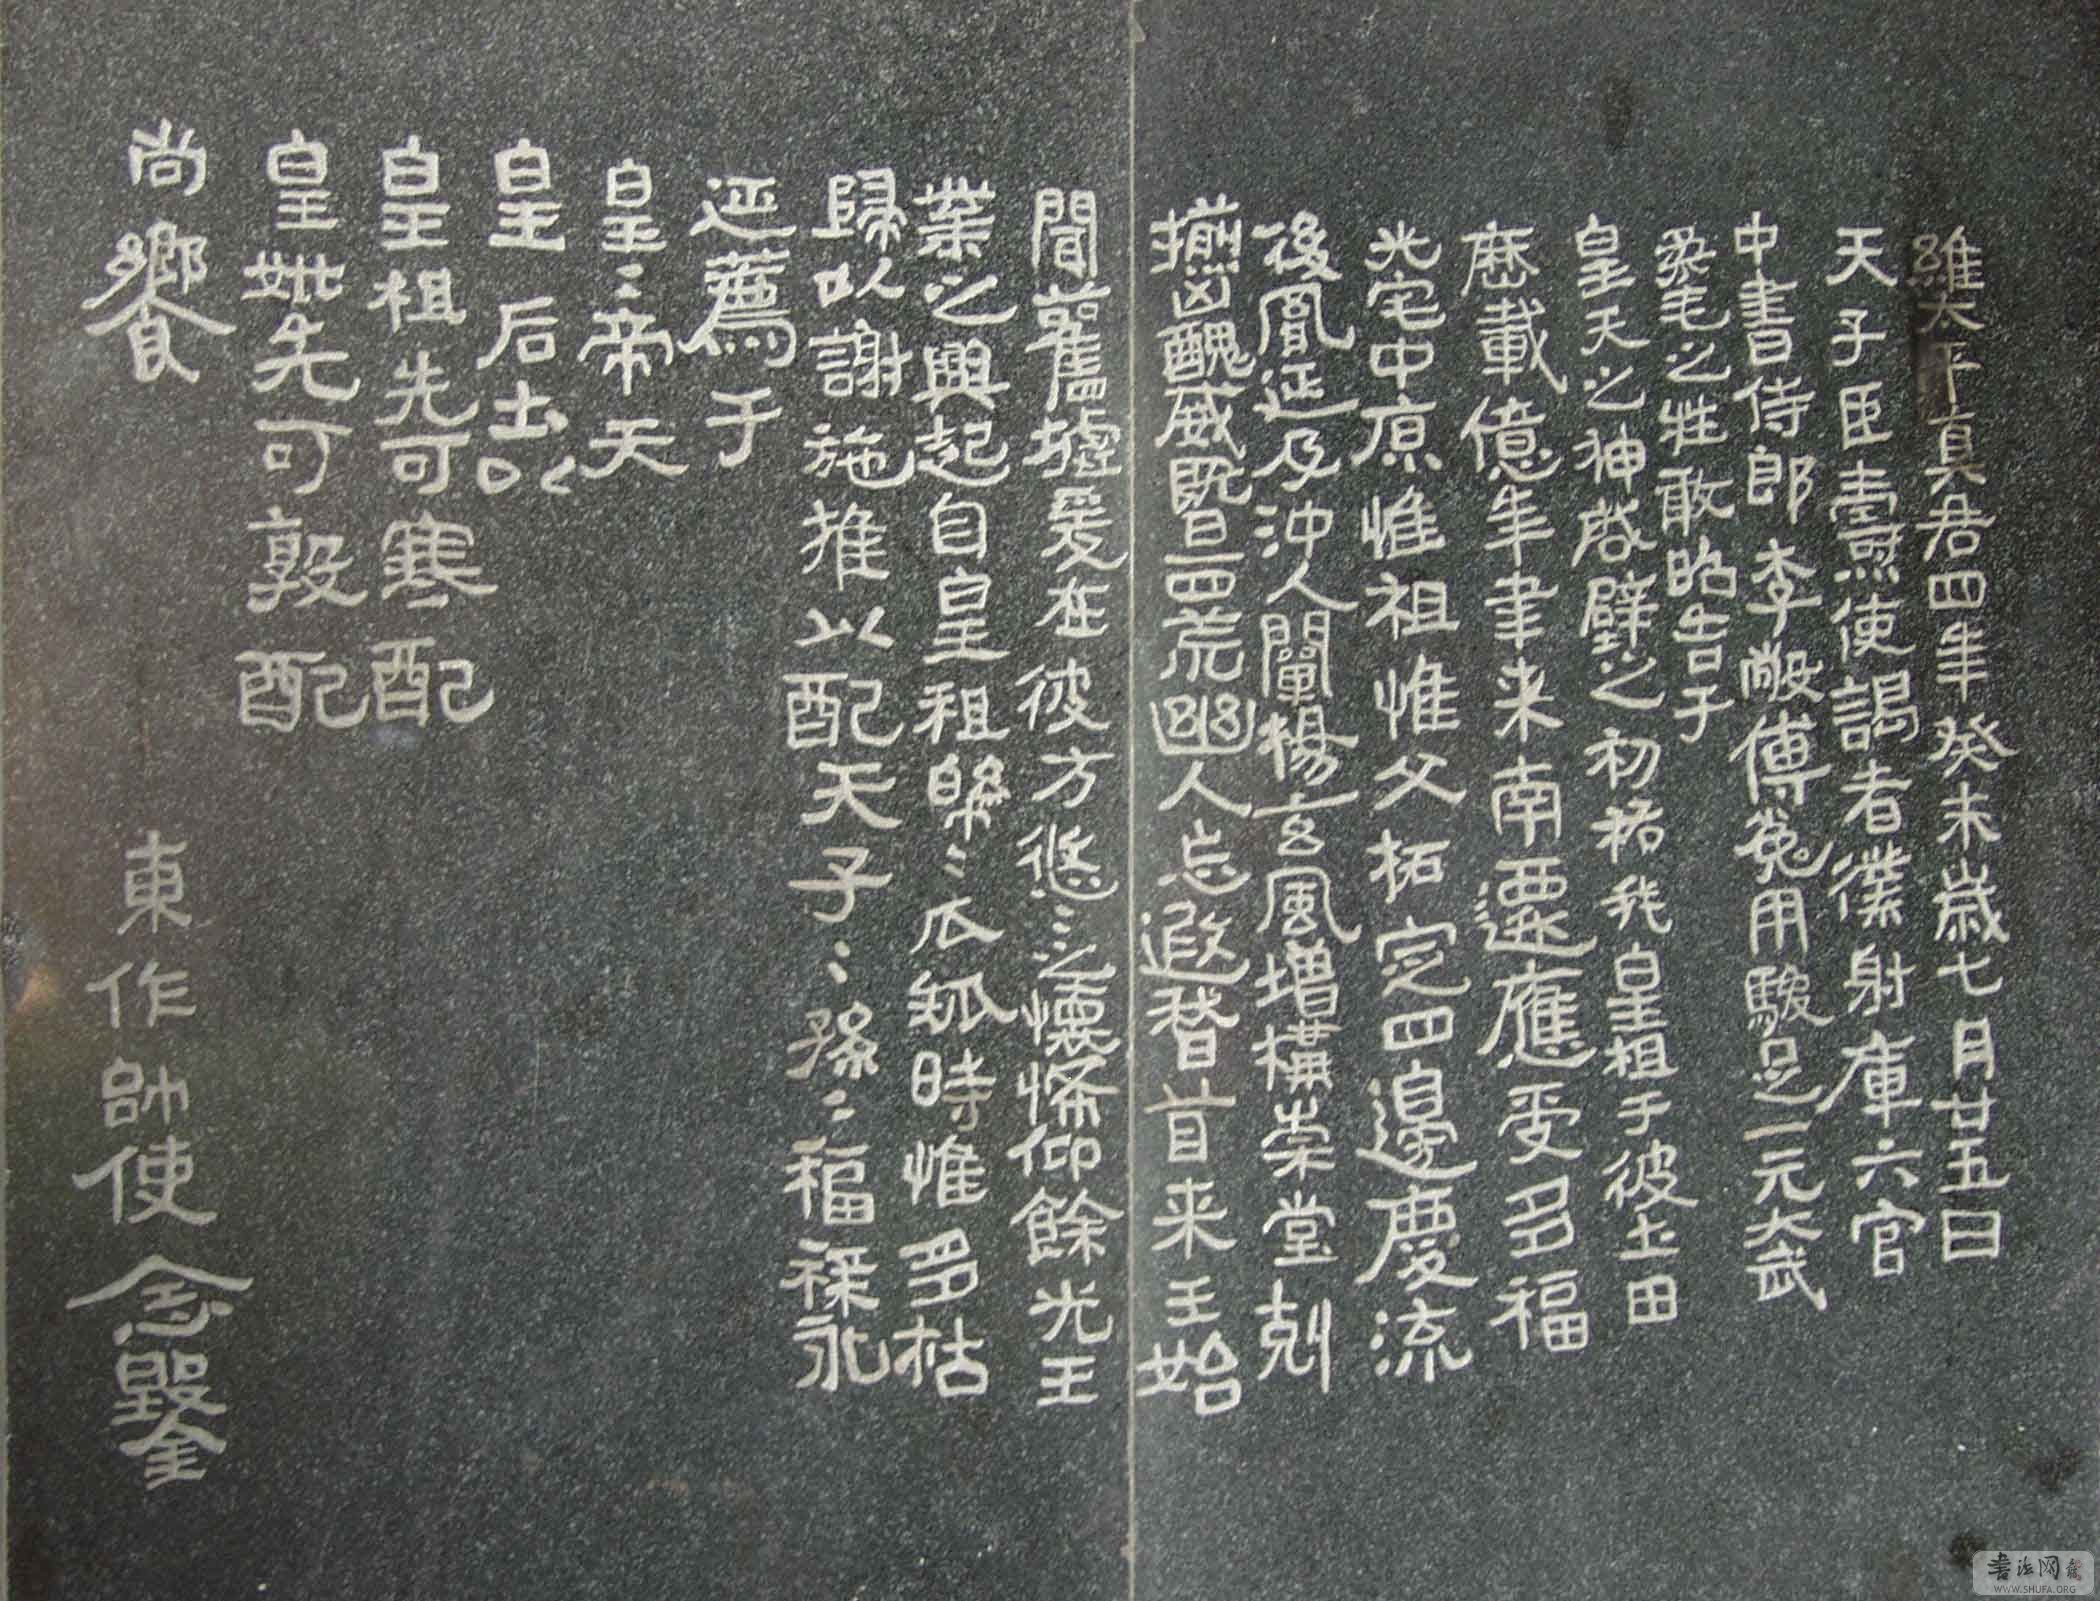 維太平真君四年癸未歲七月廿五日
天子臣燾使謁者僕射庫六官
中書侍郎李敞傅㝹用駿足一元大武
柔毛之牲敢昭告于
皇天之神啓辟之初祐我皇祖于彼土田
歷載億年聿来南遷應受多福
光宅中原惟祖惟父拓定四邊慶流
後胤延及沖人闡揚玄風增構崇堂剋
揃凶醜威暨四荒幽人忘遐稽首来王始
聞舊墟爰在彼方悠〻之懷希仰餘光王
業之興起自皇祖綿〻瓜瓞時惟多祜
歸以謝施推以配天子〻孫〻福祿永
延薦于
皇〻帝天
皇后土以
皇祖先可寒配
皇妣先可敦配
尚饗
東作帥使念鑿
書法网
WWW.SHUFA.ORG